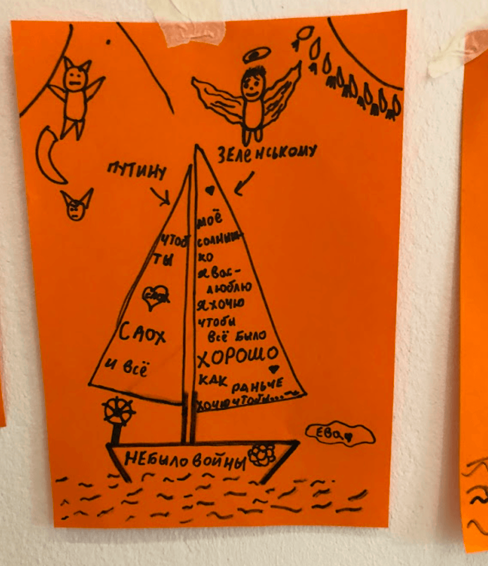 ПУТИНУ
ЗЕЛЕНСЬКОМУ
ЧТОБ
ТЫ
САОХ
И ВСЁ
МОЁ
СОЛНЫШ-
КО
Я ВАС-
ЛЮБЛЮ
Я ХОЧЮ
ЧТОБЫ
ВСЁ БЫЛО
ХОРОШО
КАК РАНЬЧЕ
ХОЧЮ ЧТОБЫ...
НЕБЫЛО ВОЙНЫ
ЕВА